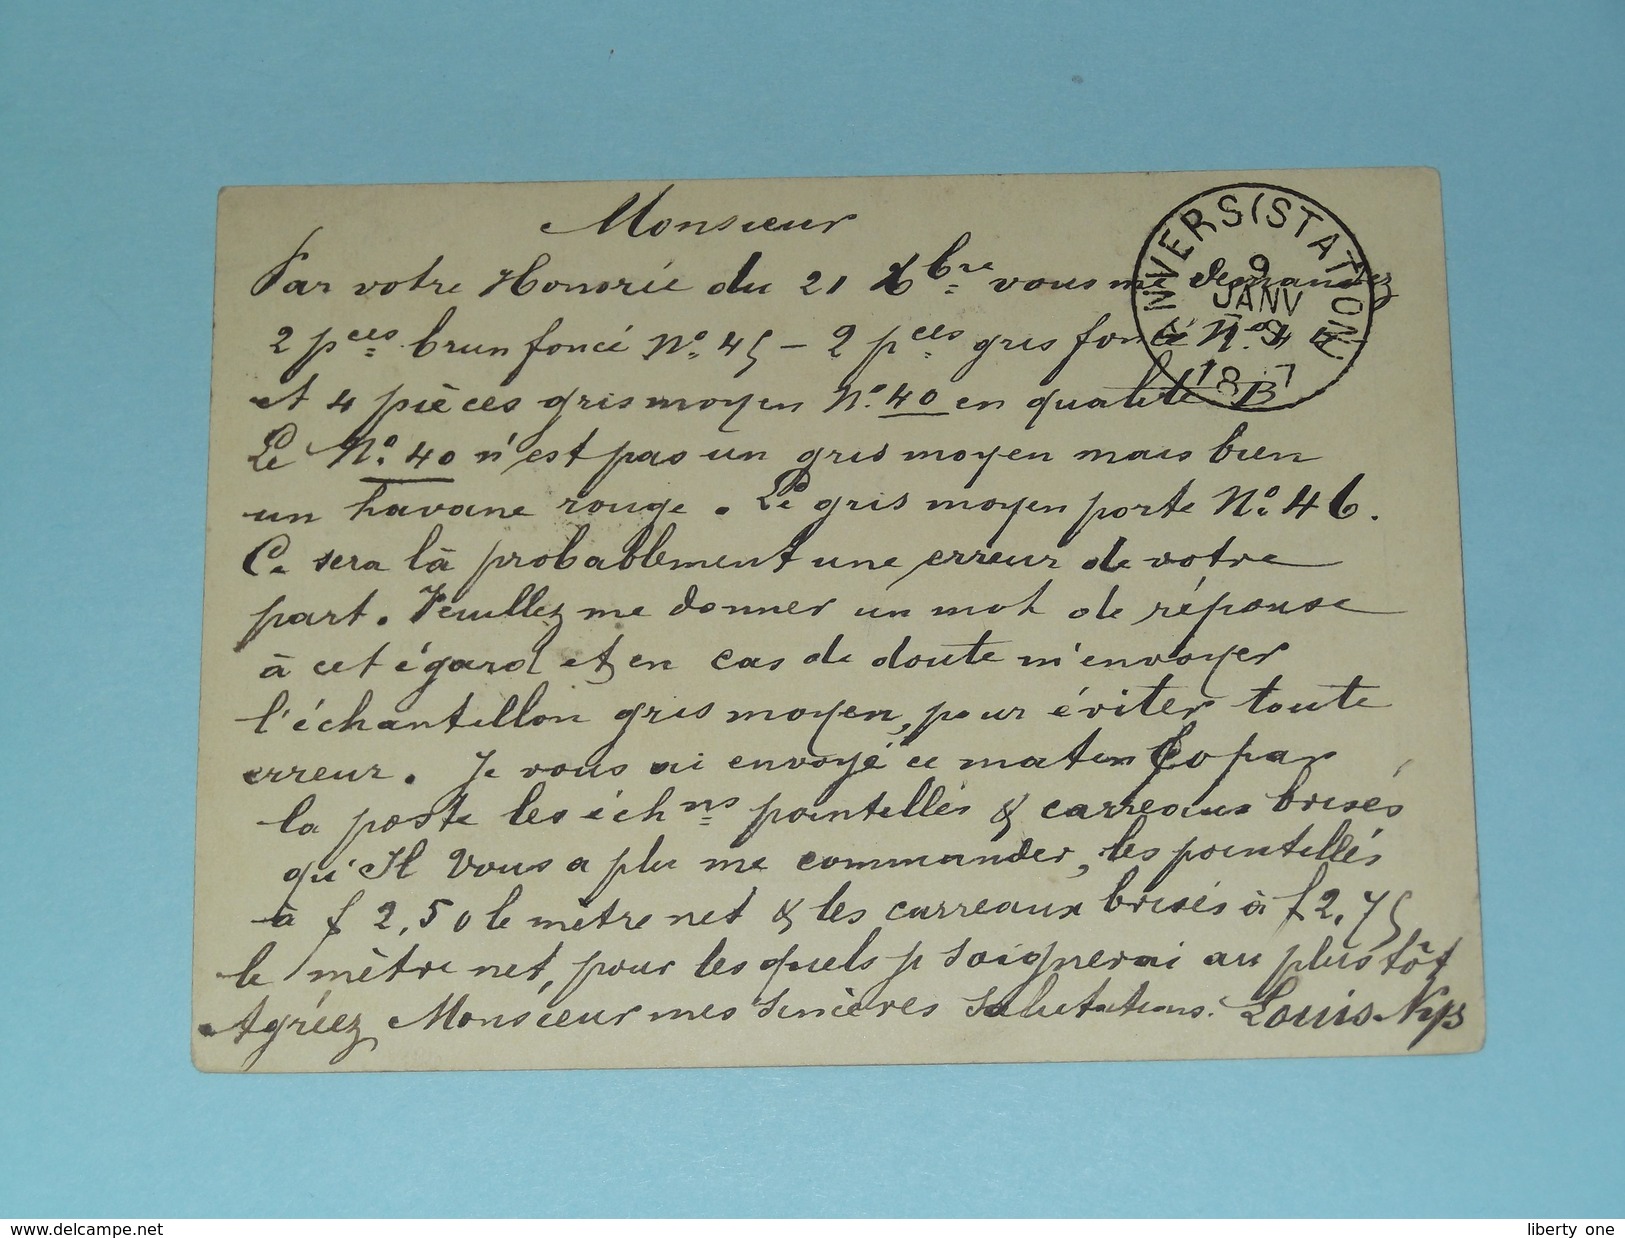 Monsieur
Par votre Honorée du 21 Xbre vous me demandez
2 pces brun foncé No. 45 – 2 pces gris foncé No.
et 4 pièces gris moyen No. 40 en qualité B
Le No. 40 n'est pas un gris moyen mais bien
un havane rouge. Le gris moyen porte No. 46.
Ce sera là probablement une erreur de votre
part. Veuillez me donner un mot de réponse
à cet égard et en cas de doute m'envoyer
l'échantillon gris moyen, pour éviter toute
erreur. Je vous ai envoyé ce matin par
la poste les échns pointillés & carreaux brisés
qu'Il Vous a plu me commander, les pointillés
à f 2,50 le mètre net & les carreaux brisés à f 2,75
le mètre net, pour lesquels je soignerai au plus tôt
Agréez Monsieur mes sincères salutations. Louis Nys
ANVERS (STATION)
9
JANV
www.delcampe.net
liberty_one